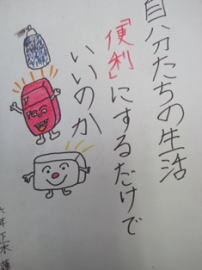 自分たちの生活
「便利」にするだけで
いいのか